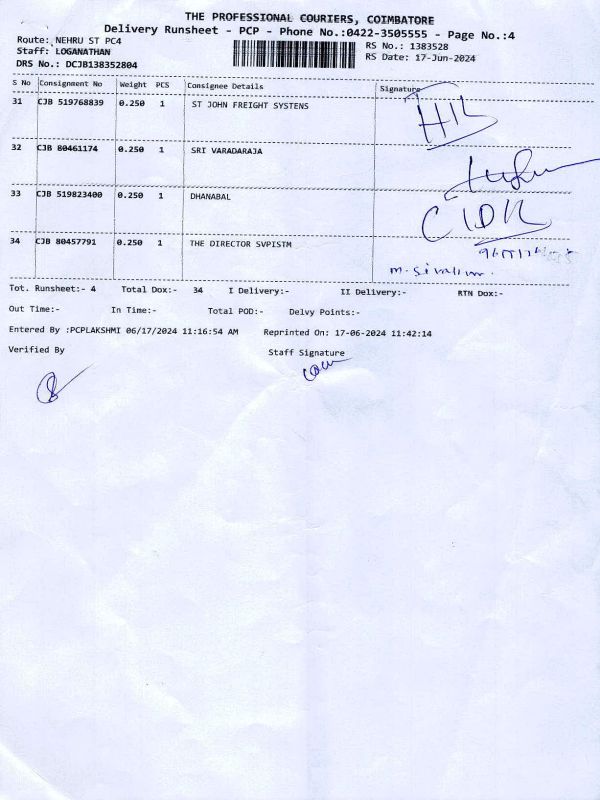 THE PROFESSIONAL COURIERS, COIMBATORE
Delivery Runsheet - PCP - Phone No.:0422-3505555 - Page No.:4
Route: NEHRU ST PC4
RS No.: 1383528
Staff: LOGANATHAN
RS Date: 17-Jun-2024
DRS No.: DCJB138352804
S No Consignment No Weight PCS Consignee Details Signature
31 CJB 519768839 0.250 1 ST JOHN FREIGHT SYSTENS
32 CJB 80461174 0.250 1 SRI VARADARAJA
33 CJB 519823400 0.250 1 DHANABAL
34 CJB 80457791 0.250 1 THE DIRECTOR SVPISTM
Tot. Runsheet:- 4 Total Dox:- 34 I Delivery:- II Delivery:- RTN Dox:-
Out Time:- In Time:- Total POD:- Delvy Points:-
Entered By :PCPLAKSHMI 06/17/2024 11:16:54 AM Reprinted On: 17-06-2024 11:42:14
Verified By Staff Signature